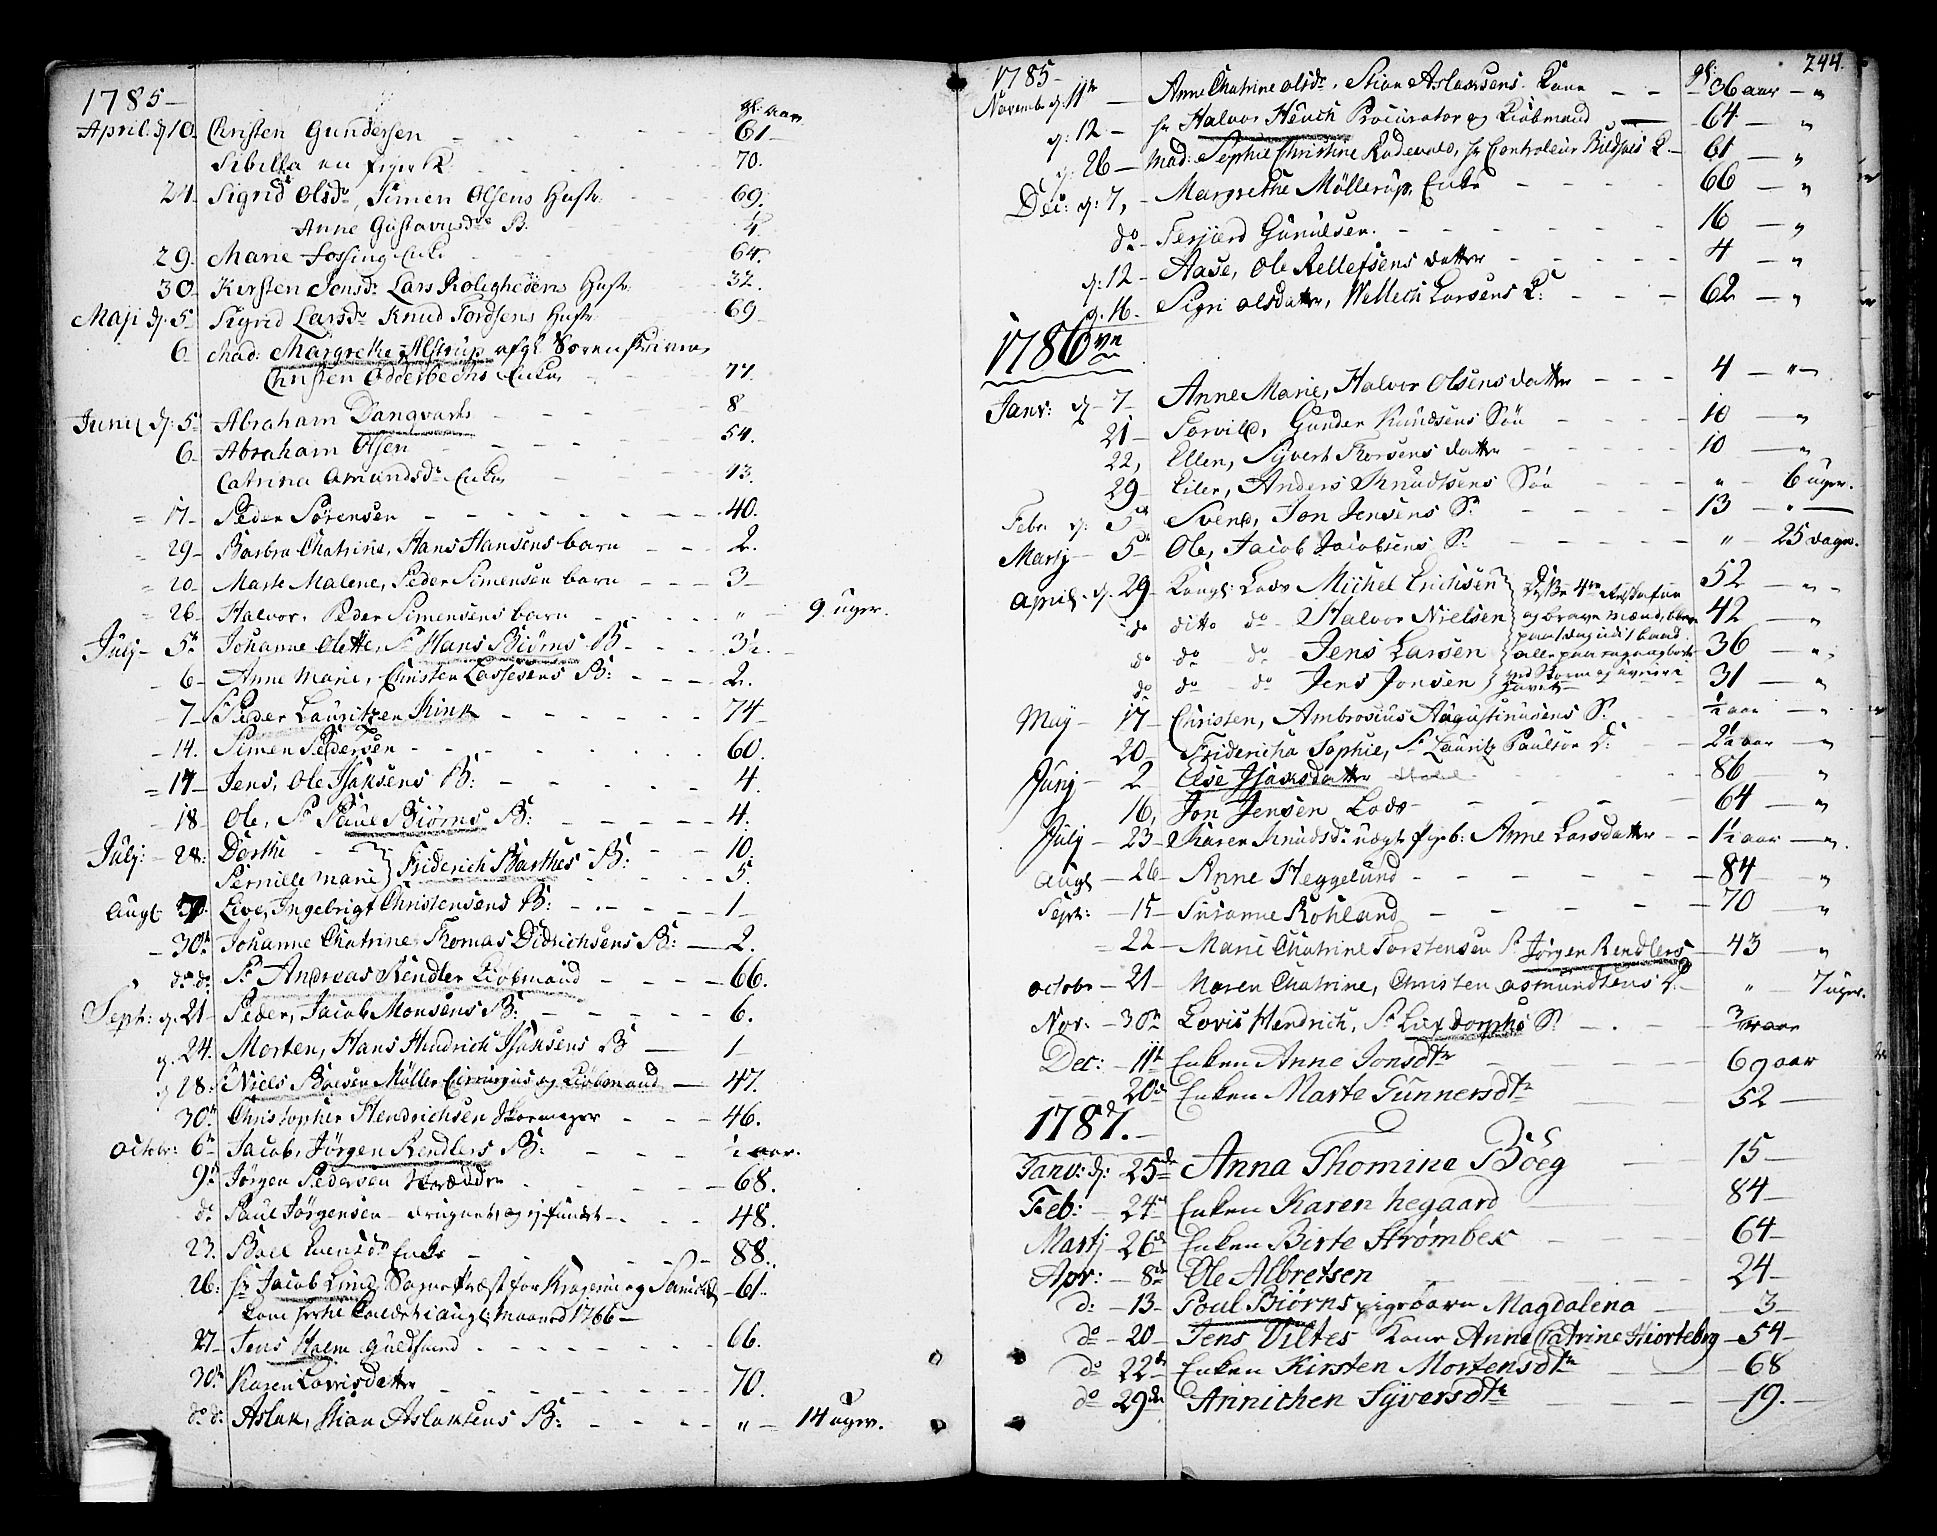 1785 –
gl: aar
April d. 10. Christen Gundersen 61 –
Sibilla en 70.
24. Sigrid Olsdr, Simen Olsens Hustr. 69.
Anne Gustavusdr B.
29. Marie Fossing Enke 64.
30. Kirsten Jonsdr Lars Rolighedens Hustr. 32.
Maji d. 5 – Sigrid Larsdr Knud Tordsens Hustr. 69
6. Mad: Margrethe Alstrup afgl. Sorenskriver
Christen Odderbechs Enke 77.
Junij d. 5 Abraham Danqvart 8 –
6. Abraham Olsen 54.
Catrina Amundsdr Enke
= 17 – Peder Sørensen 40.
29 – Barbra Chatrine, Hans Hansens barn 2.
20 – Marte Malene, Peder Simensen barn 3 –
= 26 – Halvor, Peder Simensens barn „ – 9 uger.
Julj – 5te Johanne Olette, Sr Hans Biørns B – 3½.
– 6 – Anne Marie, Christen Lassesens B: 2.
– 7 – Sr Peder Lauritzen Kink 74 –
– 14. Simen Pedersen 60.
= 17 – Jens, Ole Isaksens B: 4.
– 18 – Ole, Sr Paul Biørns B: 4.
Julj: – 28: Dorthe 10.
Pernille Marie } Friderich Barthes B: 5.
Augt. Live, Ingebrigt Christensens B: 1 –
– 30te Johanne Chatrine Thomas Didrichsens B: 2.
do do Sr Andreas Kendler Kiøbmand 66.
Sept: d. 21 – Peder, Jacob Monsens B: 6.
d. 24. Morten, Hans Hindrich Isaksens B 1 –
d. 28: Sr Niels Boesen Møller Cirurgus og Kiøbmand – 47.
30te Christopher Hendrichsen Skomager 46.
Octobr: 6te Jacob, Jørgen Kendlers B: ½ aar.
9te Jørgen Pedersen Skrædder 68.
do Paul Jørgensen – druknet, og ej funden 48.
23. Boel Evensdr Enke 88.
26: hr Jacob Lund Sogne Præst for Kragerøe og
Kom hertil Kaldet i Augt Maaned 1766 – 61.
27 – Jens Holm Guldsmed 66.
30te Karen Larsdatter 70.
do d: Aslak, Stian Aslaksens B: „ – 14 uger.
244.
1785 –
gl:
Novemb: d. 11te – Anne Chatrine Olsdr, Stian Aslaksens Kone – 36 aar – „
d: 12 – hr Halvor Heuch Procurator og Kiøbmand – 64 – „
d: 26 – Mad: Sophie Christine Rodevald, hr Controleur Bildsøes K. – 61 – „
Dec: d: 7, – Margrethe Möllerup, Enke 66 – „
do – Terjerd Gunulsen. 16 – „
d: 12 – Aase, Ole Rellefsens datter 4 – „
d. 16. Sigri Olsdatter, Wellech Larsens K: 62 – „
1786
Janv: d – 7 – Anne Marie, Halvor Olsens datter 4 – „ –
21 – Torvild, Gunder Knudsens Søn 10 – „
22, Ellen, Syvert Thorsens datter 10 – „
29 – Eiler, Anders Knudtsens Søn „ – 6 uger.
Febr: d: 5te Svend, Jon Jensens S: 13 – „ –
Martj – 5te Ole, Jacob Jacobsens S: „ – 25 dage.
April. d. 29 – Kongl: Lods Michel Erichsen 52 – „ –
do ditto do – Halvor Nielsen 42 – „
do do do – Jens Larsen 36 – „
do do – do – Jens Jonsen 31 – „
May – 17 – Christen, Ambrosius Augustinusens S. ½ aar – „
20 – Fridericha Sophie, Sr Lauritz Paulson D: 2½ aar – „
Junj – 2 – Else Isaksdatter 86 – „
16, Jon Jensen Lods – 64 – „
Julj – 23 – Karen Knudsdr uægt. pigeb: Anne Larsdatter – 1½ aar – „
Augt – 26 – Anne Heggelund 84 – „
Sept: – 15 – Susanne Rohland 70 – „
= 22 – Marie Chatrine Torstensen Sr Jørgen Kendlers – 43 – „
Octobr – 21 – Maren Chatrine, Christen Asmundsens D: „ – 7 uger.
Nov. – 30te Lovis Hendrich, Sr Luxdorphs S:
Dec: – 11te Enken Anne Jonsdtr 69 aar
– 20de Enken Marte Gunnersdtr 52 –
1787. –
Janv: d: 25de Anna Thomine Böeg 15 –
Feb: – 24de Enken Karen Hegaard 84 –
Martj – 26de Enken Birte Strømbek 64 –
Apr: – 8de Ole Albretsen 24 –
d: – 13 – Poul Biørns pigebarn Magdalena 3 –
do – 20 – Jens Viltes Kone Anne Catrine Hiorteberg – 54 –
do – 22de Enken Kirsten Mortensdtr 68
do 29de Annichen Syversdtr 19. –